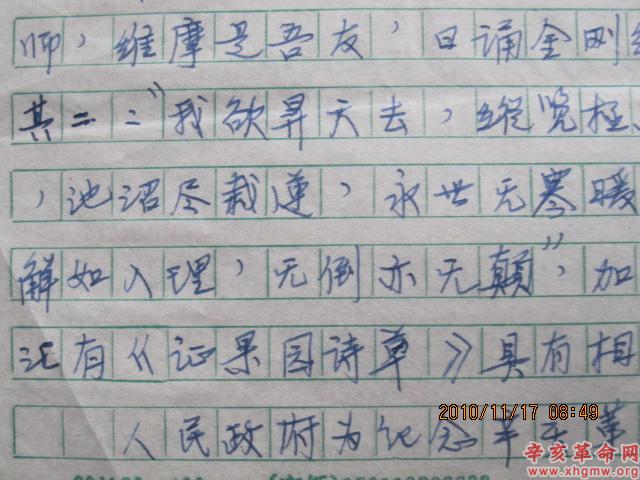 师，维摩是吾友，日诵金刚经
其二：“我欲昇天去，纵览极
，池沼尽栽莲，永世无寒暖
解如入理，无倒亦无颠”，加
还有《证果园诗草》具有相
人民政府为纪念辛亥革
2010/11/17 08:49
辛亥革命网
www.xhgmw.org